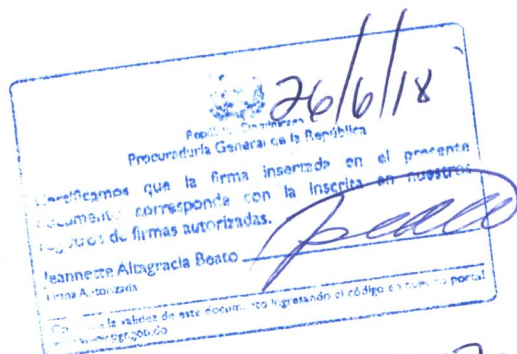 26/6/18
República Dominicana
Procuraduría General de la República
Certificamos que la firma insertada en el presente
documento corresponde con la inscrita en nuestros
registros de firmas autorizadas.
Jeannette Altagracia Beato
Firma Autorizada
la validez de este documento ingresando el código en nuestro portal